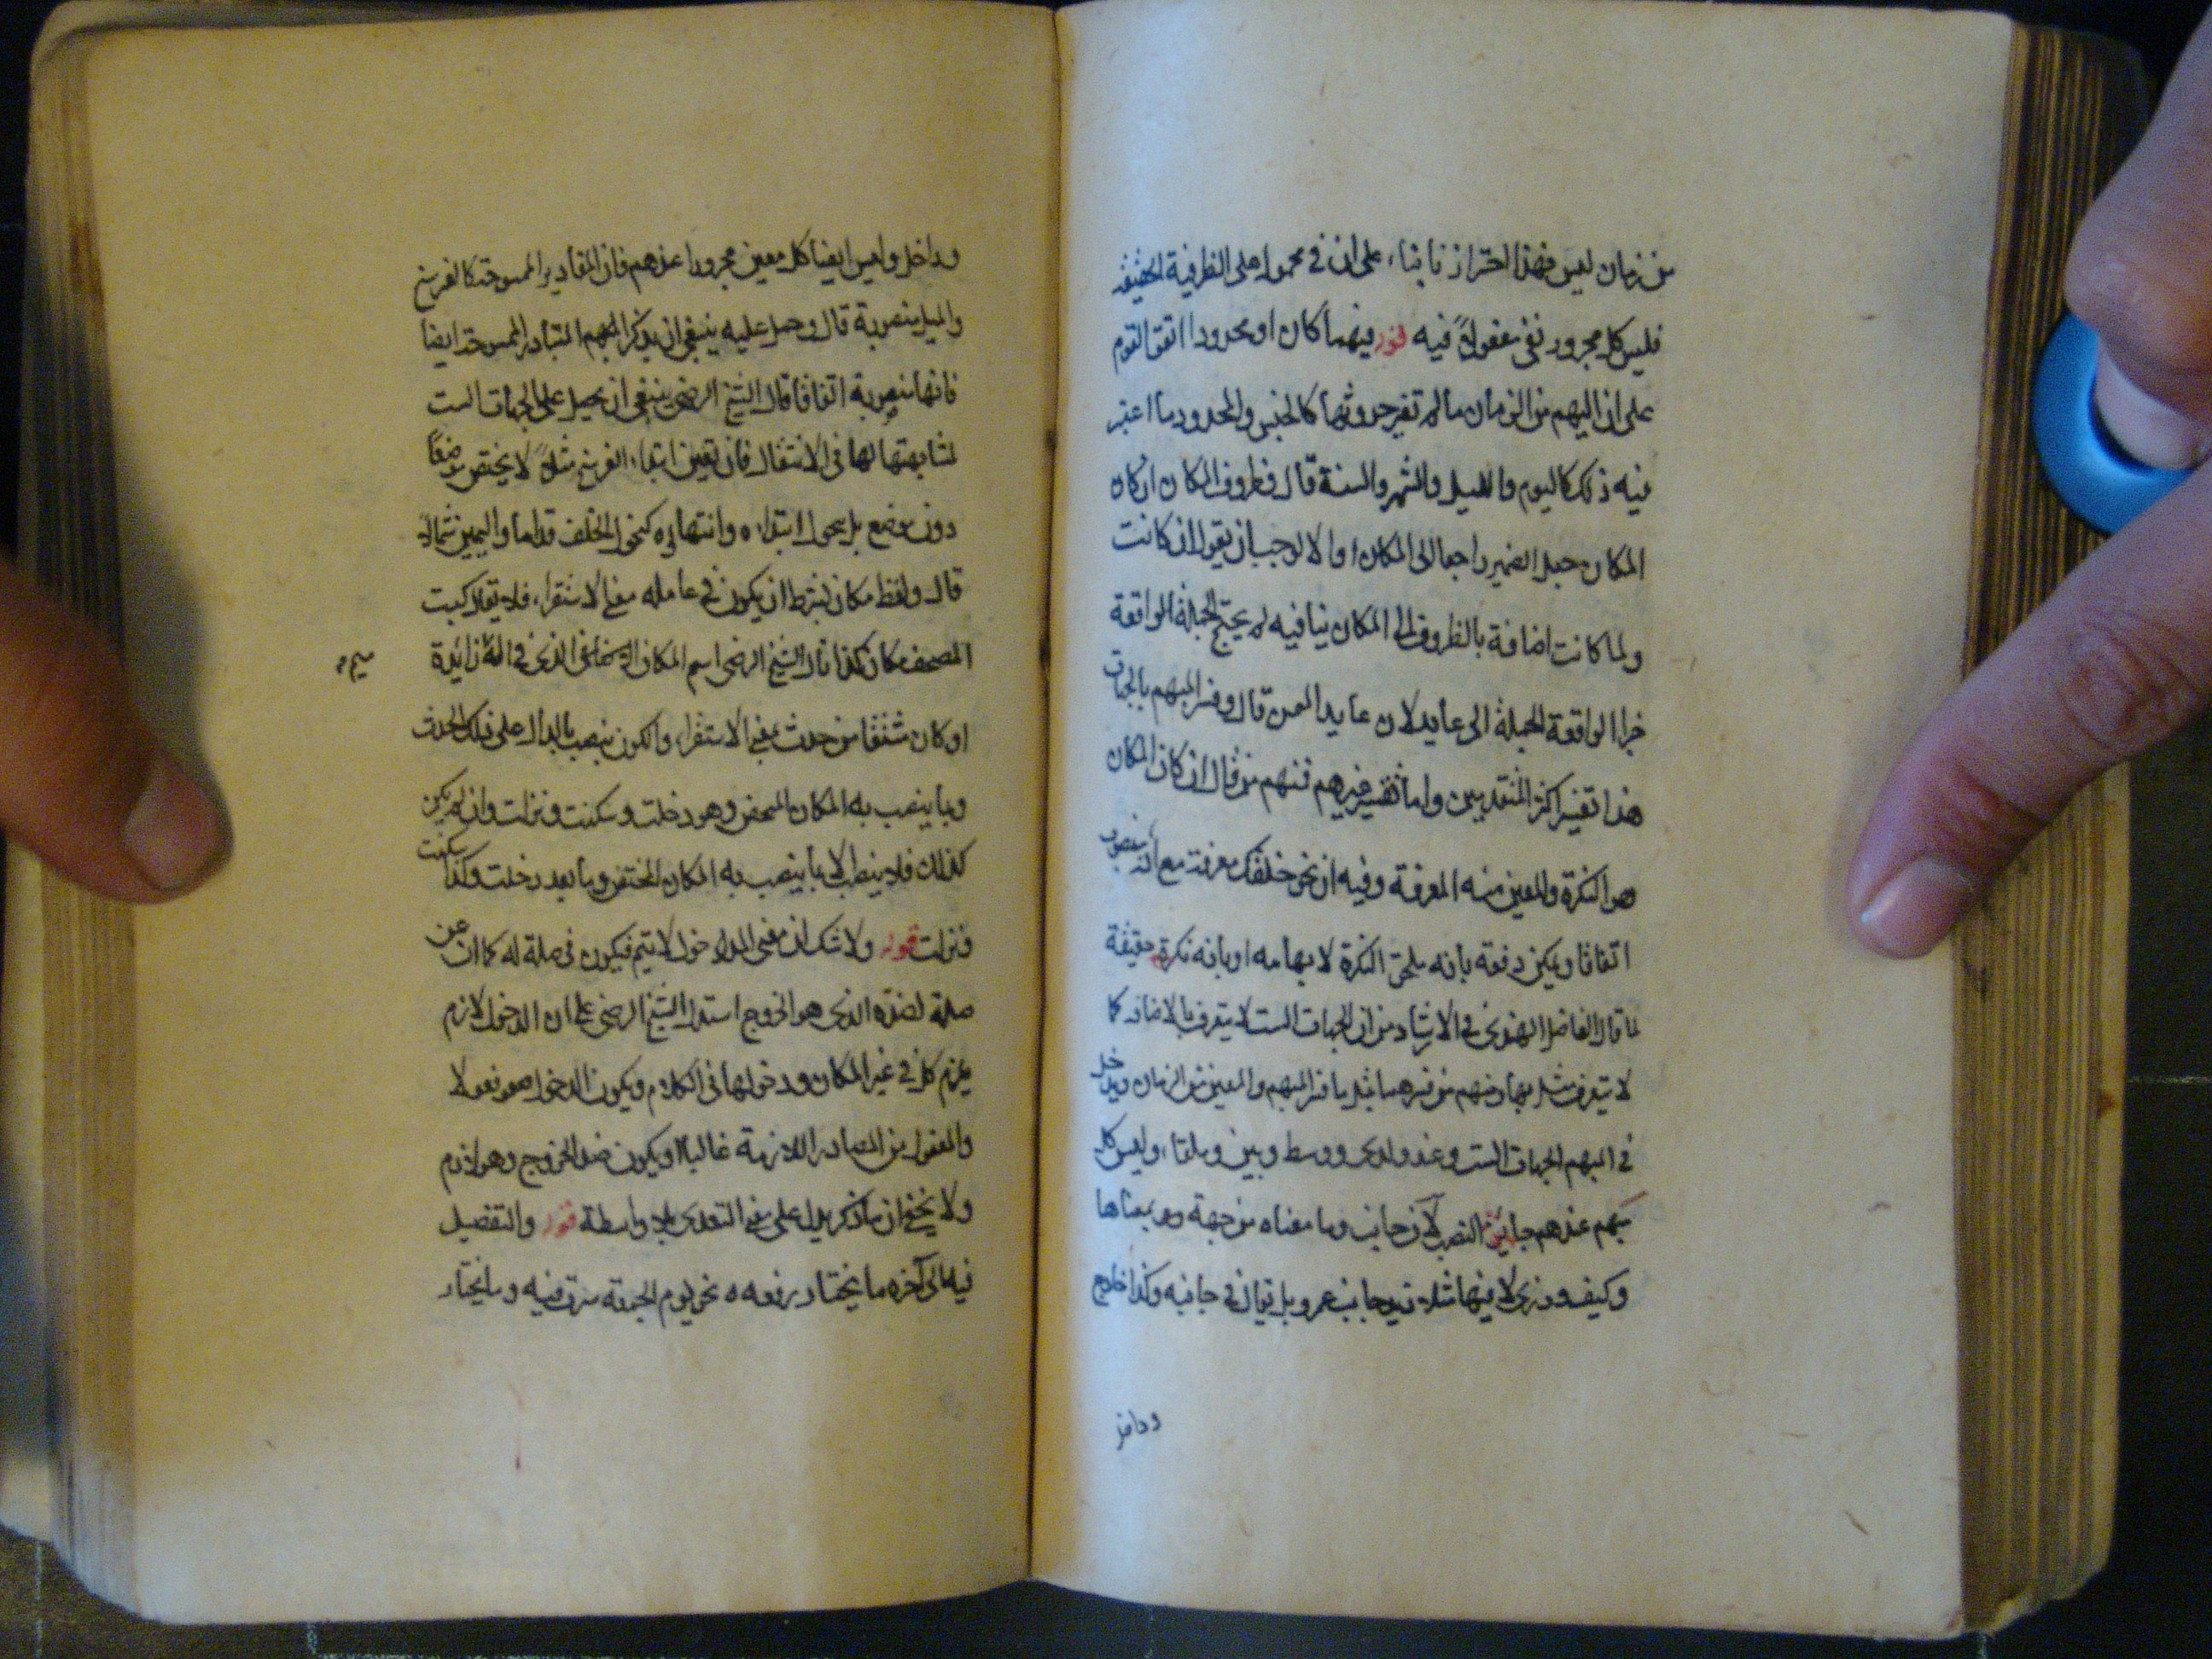 من زمان ليس فهذا احتراز نا بناء على ان في محمولة على الظرفية الحقيقية
فليس كل مجرور في مفعولاً فيه قوله مبهما كان او محدودا اتفق القوم
على ان المبهم من الزمان ما لم تعتبر حدوثها كالحين والمحدود ما اعتبر
فيه ذلك كاليوم والليل والشهر والسنة قال وظروف المكان ان كان
المكان جعل الضمير راجعا الى المكان والا لوجب ان يقول ان كانت
ولما كانت اضافة بالظروف الى المكان بيانية لم يحتج الجملة الواقعة
خبرا الواقعة الجملة الى عايد لان عايد قال وفسر المبهم بالجهات
هذا تفسير اكثر المتقدمين واما تفسير غيرهم فمنهم من قال ان كان المكان
هو النكرة والمعين منه المعرفة وفيه ان نحو خلفك معرفة مع انه منصوب
اتفاقا ويمكن دفعه بانه ملحق النكرة لابهامه او بانه نكرة حقيقة
لما قال الفاضل الهندي في الارشاد من ان الجهات الست لا يتعرف بالاضافة كما
لا يتعرف مثل بها ومنهم من فسرهما بمثل ما فسر المبهم والمعين من الزمان ويدخل
في المبهم الجهات الست وعند ولدى ووسط وبين وتلقاء وليس كل
مبهم عندهم جائز النصب لان جانب وما معناه من جهة وما بمعناها
وكيف وذرى لا فيها فلا زيد جانب عمرو بل يقال في جانبه وكذا خارج
وداخل
وداخل وليس ايضا كل معين مجرورا عندهم فان المقادير الممسوحة كالفرسخ
والميل منصوبة قال وحمل عليه ينبغي ان يذكر المبهم المقادير الممسوحة ايضا
فانها منصوبة اتفاقا قال الشيخ الرضي ينبغي ان يحمل على الجهات الست
لمشابهتها لها في الانتقال فان تعيين ابتداء الفرسخ مثلاً لا يختص موضعا
دون موضع بل يتحول ابتداؤه وانتهاؤه كتحول الخلف قداما واليمين شمالا
قال ولفظ مكان يشترط ان يكون في عامله معنى الاستقرار فلا يقال كتبت
المصحف مكان كذا قال الشيخ الرضي اسم المكان ان الذي في اوله زائدة
ميم
او كان مشتقا من حدث بمعنى الاستقرار والكون ينصب بالدال على ذلك الحدث
وبما ينصب به المكان المختص وهو دخلت وسكنت ونزلت وان لم يكن
كذلك فلا ينصب الا بما ينصب به المكان المختص وما بعد دخلت وكذا سكنت
ونزلت قوله ولا شك ان معنى الدخول لا يتم فيكون في صلة له كما ان عن
صلة لضده الذي هو الخروج استدل الشيخ الرضي على ان الدخول لازم
يلزم كل في غير المكان ودخولها في الكلام ويكون الدخول مصدر فعولا
والفعول من المصادر اللازمة غالبا ويكون ضد الخروج وهو لازم
ولا يخفى ان ما ذكر يدل على نفي التعدي بلا واسطة قوله والتفصيل
فيه الى آخره ما يختار رفعه نحو يوم الجمعة سرت فيه وما يختار